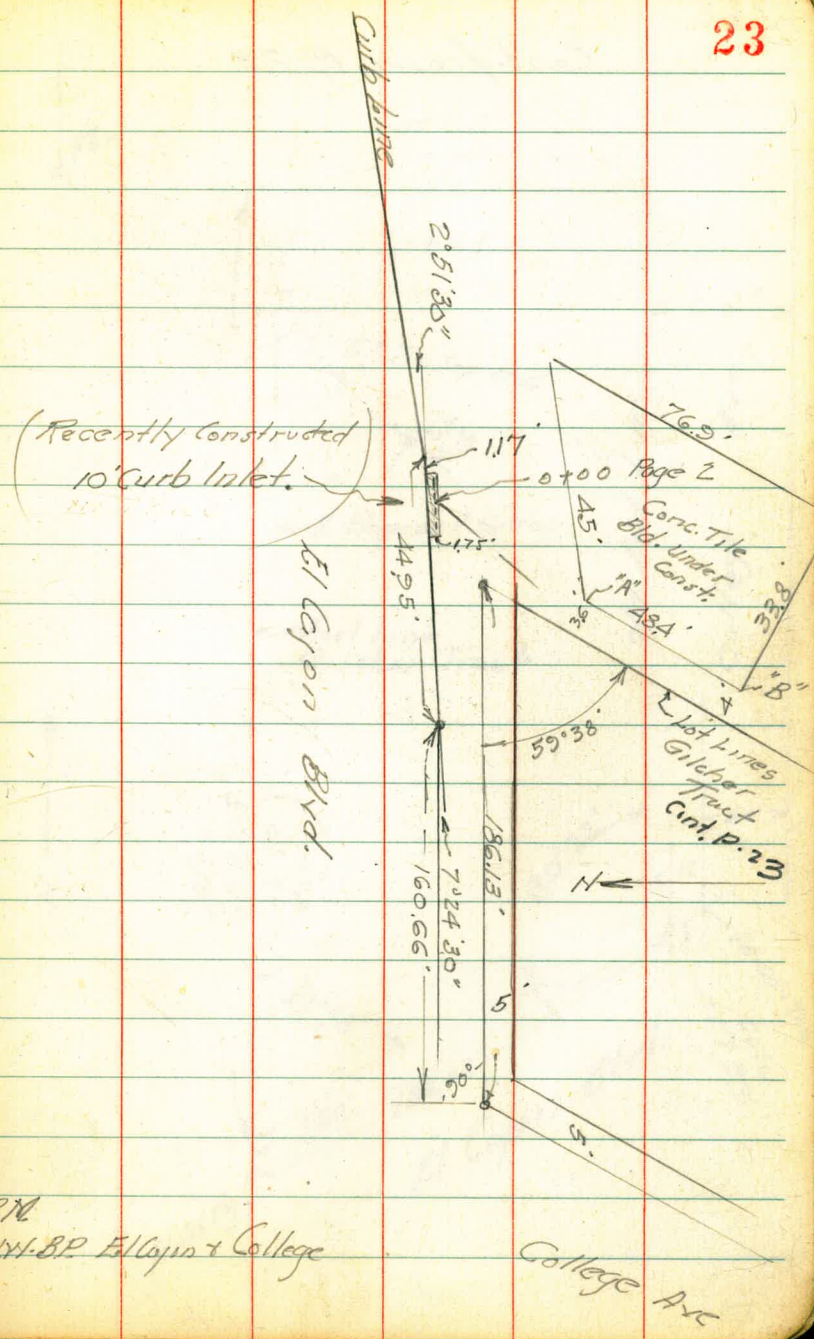 23
Curb Line
2°51'30"
76.9'
(Recently Constructed)
10' Curb Inlet.
1.17'
0+00 Page 2
45'
Conc. Tile
Bld. under
Const.
1.75'
44.95'
"A"
3.6'
48.4'
33.8'
"B"
4'
El Cajon Blvd.
59°38'
Lot Lines
Gilcher
Tract
Cont. P. 23
186.13'
N
7°24'30"
160.66'
5'
5'
El Cajon & College
College Ave